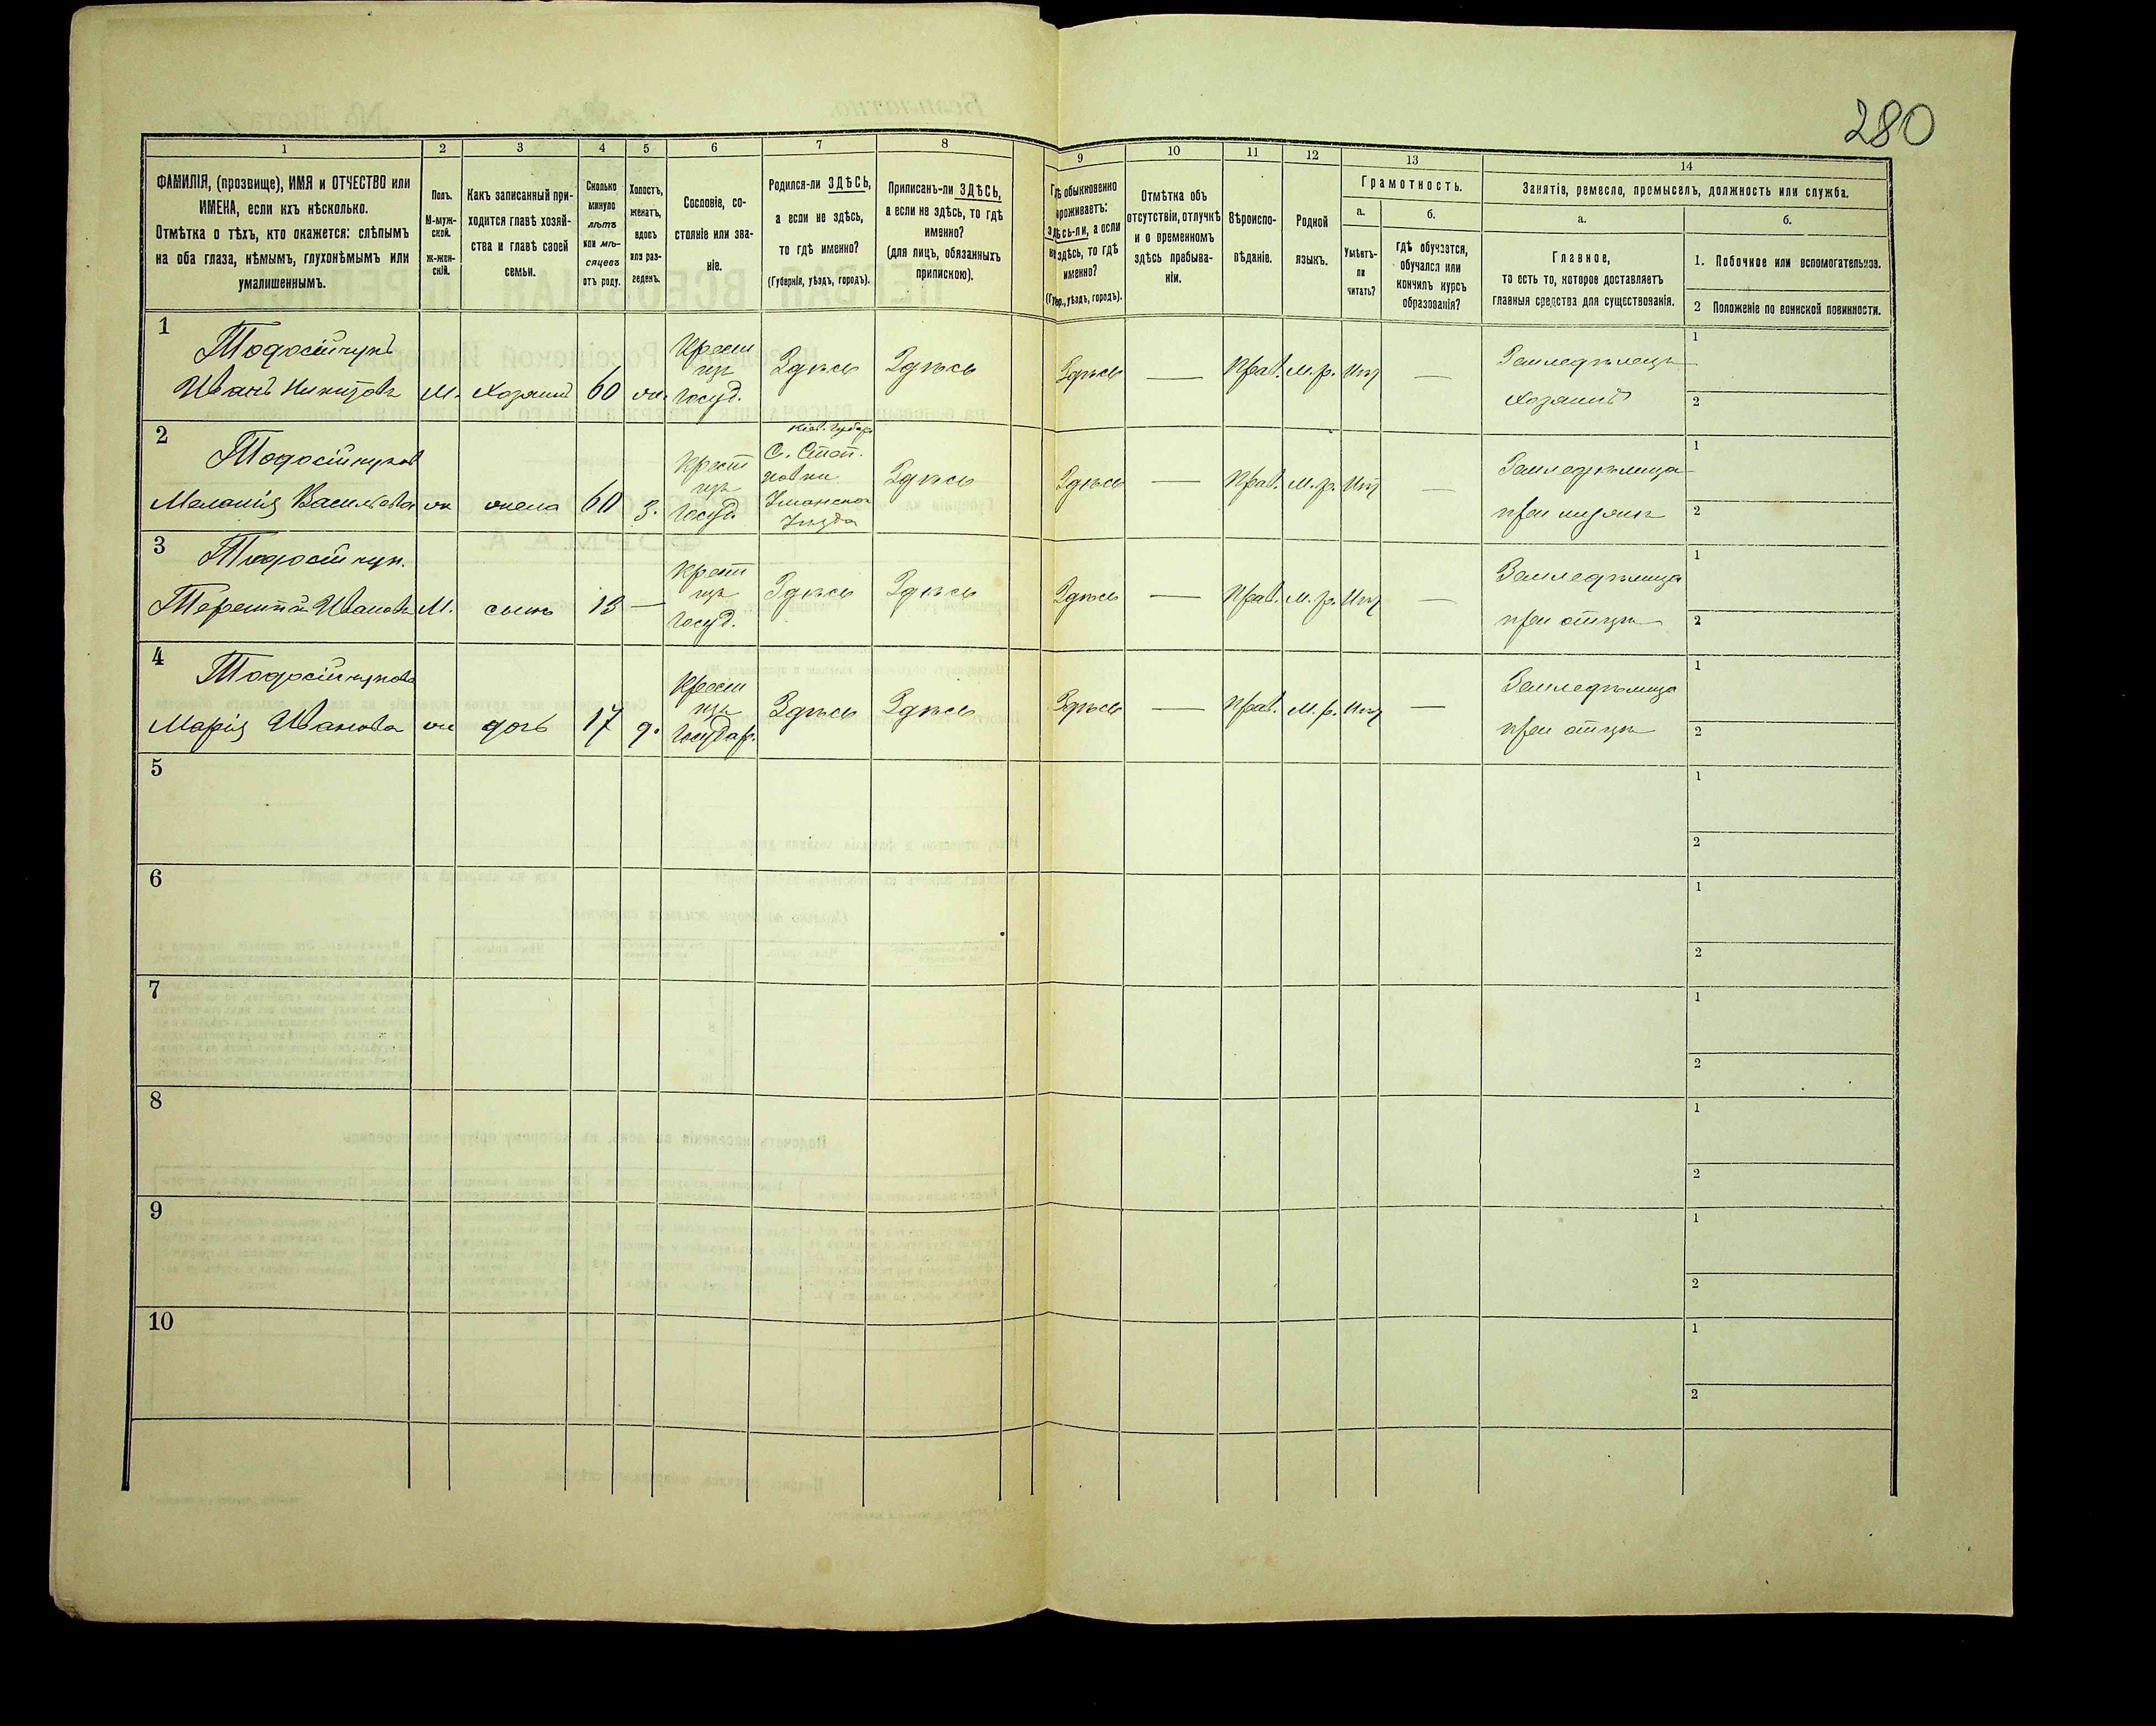 280
1 2 3 4 5 6 7 8 9 10 11 12 13 14
ФАМИЛІЯ, (прозвище), ИМЯ и ОТЧЕСТВО или
ИМЕНА, если ихъ нѣсколько.
Отмѣтка о тѣхъ, кто окажется: слѣпымъ
на оба глаза, нѣмымъ, глухонѣмымъ или
умалишеннымъ.
Полъ.
М-муж-
ской.
ж-жен-
скій.
Какъ записанный при-
ходится главѣ хозяй-
ства и главѣ своей
семьи.
Сколько
минуло
лѣтъ
или мѣ-
сяцевъ
отъ роду.
Холостъ,
женатъ,
вдовъ
или раз-
веденъ.
Сословіе, со-
стояніе или зва-
ніе.
Родился-ли ЗДѢСЬ,
а если не здѣсь,
то гдѣ именно?
(Губернія, уѣздъ, городъ).
Приписанъ-ли ЗДѢСЬ,
а если не здѣсь, то гдѣ
именно?
(для лицъ, обязанныхъ
припискою).
Гдѣ обыкновенно
проживаетъ:
здѣсь-ли, а если
не здѣсь, то гдѣ
именно?
(Губер., уѣздъ, городъ).
Отмѣтка объ
отсутствіи, отлучкѣ
и о временномъ
здѣсь пребыва-
ніи.
Вѣроиспо-
вѣданіе.
Родной
языкъ.
Грамотность.
а.
Умѣетъ-
ли
читать?
б.
гдѣ обучается,
обучался или
кончилъ курсъ
образованія?
Занятіе, ремесло, промыселъ, должность или служба.
а.
Главное,
то есть то, которое доставляетъ
главныя средства для существованія.
б.
1. Побочное или вспомогательное.
2 Положеніе по воинской повинности.
1
Тодосійчукъ
Иванъ Никитовъ
М.
Хозяинъ
60
ж.
Крест
изъ
Госуд.
Здѣсь
Здѣсь
Здѣсь
—
Прав.
М. р.
Нѣт
—
Земледѣлецъ
Хозяинъ
1
2
2
Тодосійчуков
Меланія Васильева
ж
жена
60
з.
Крест
изъ
Госуд.
Кіев. Губер
Уманского
Уѣзда
Здѣсь
Здѣсь
—
Прав.
М. р.
Нѣт
—
Земледѣлица
при мужѣ
1
2
3
Тодосійчук.
Терентій Иванов
М.
сынъ
13
—
Крест
изъ
Госуд.
Здѣсь
Здѣсь
Здѣсь
—
Прав.
М. р.
Нѣт
—
Земледѣлица
при отцѣ
1
2
4
Тодосійчукова
Марія Иванова
ж
дочь
17
д.
Крест
изъ
Государ.
Здѣсь
Здѣсь
Здѣсь
—
Прав.
М. р.
Нѣт
—
Земледѣлица
при отцѣ
1
2
5
1
2
6
1
2
7
1
2
8
1
2
9
1
2
10
1
2